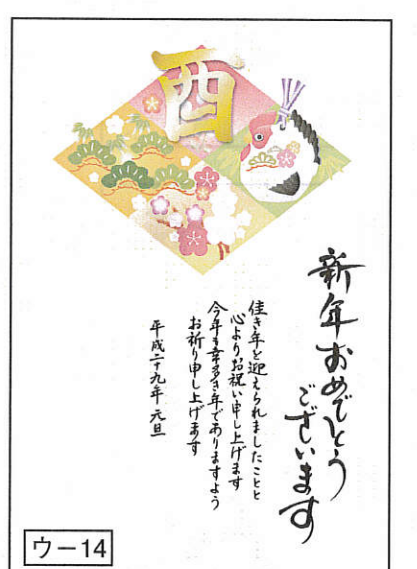 酉
新年おめでとう
ございます
佳き年を迎えられましたことと
心よりお祝い申し上げます
今年も幸多き年でありますよう
お祈り申し上げます
平成二十九年 元旦
ウー14